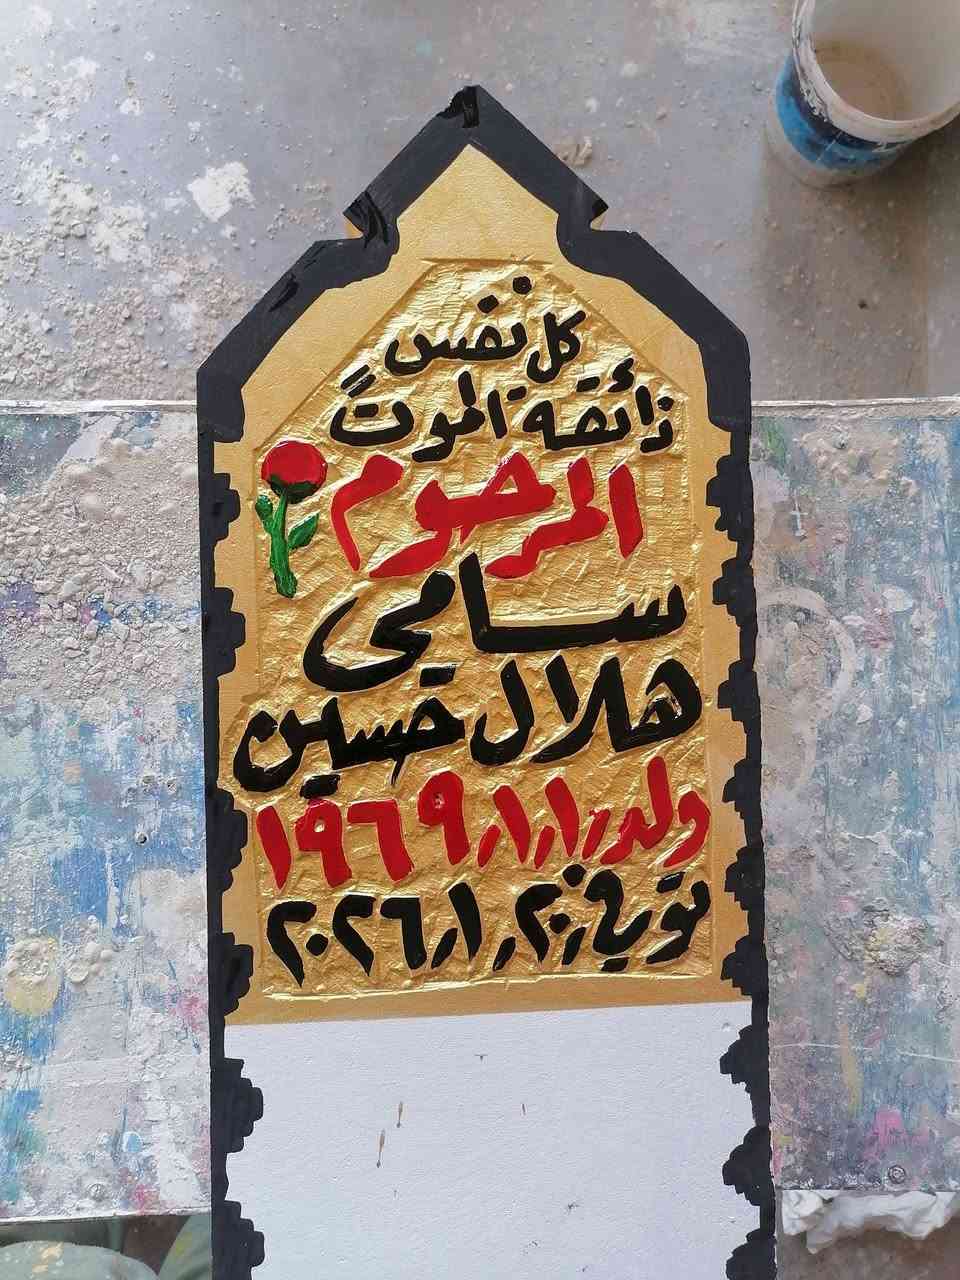 كل نفس
ذائقة الموت
المرحوم
سامي
هلال حسين
ولد ١/١/١٩٦٩
توفي ٢٠/١/٢٠٢٦